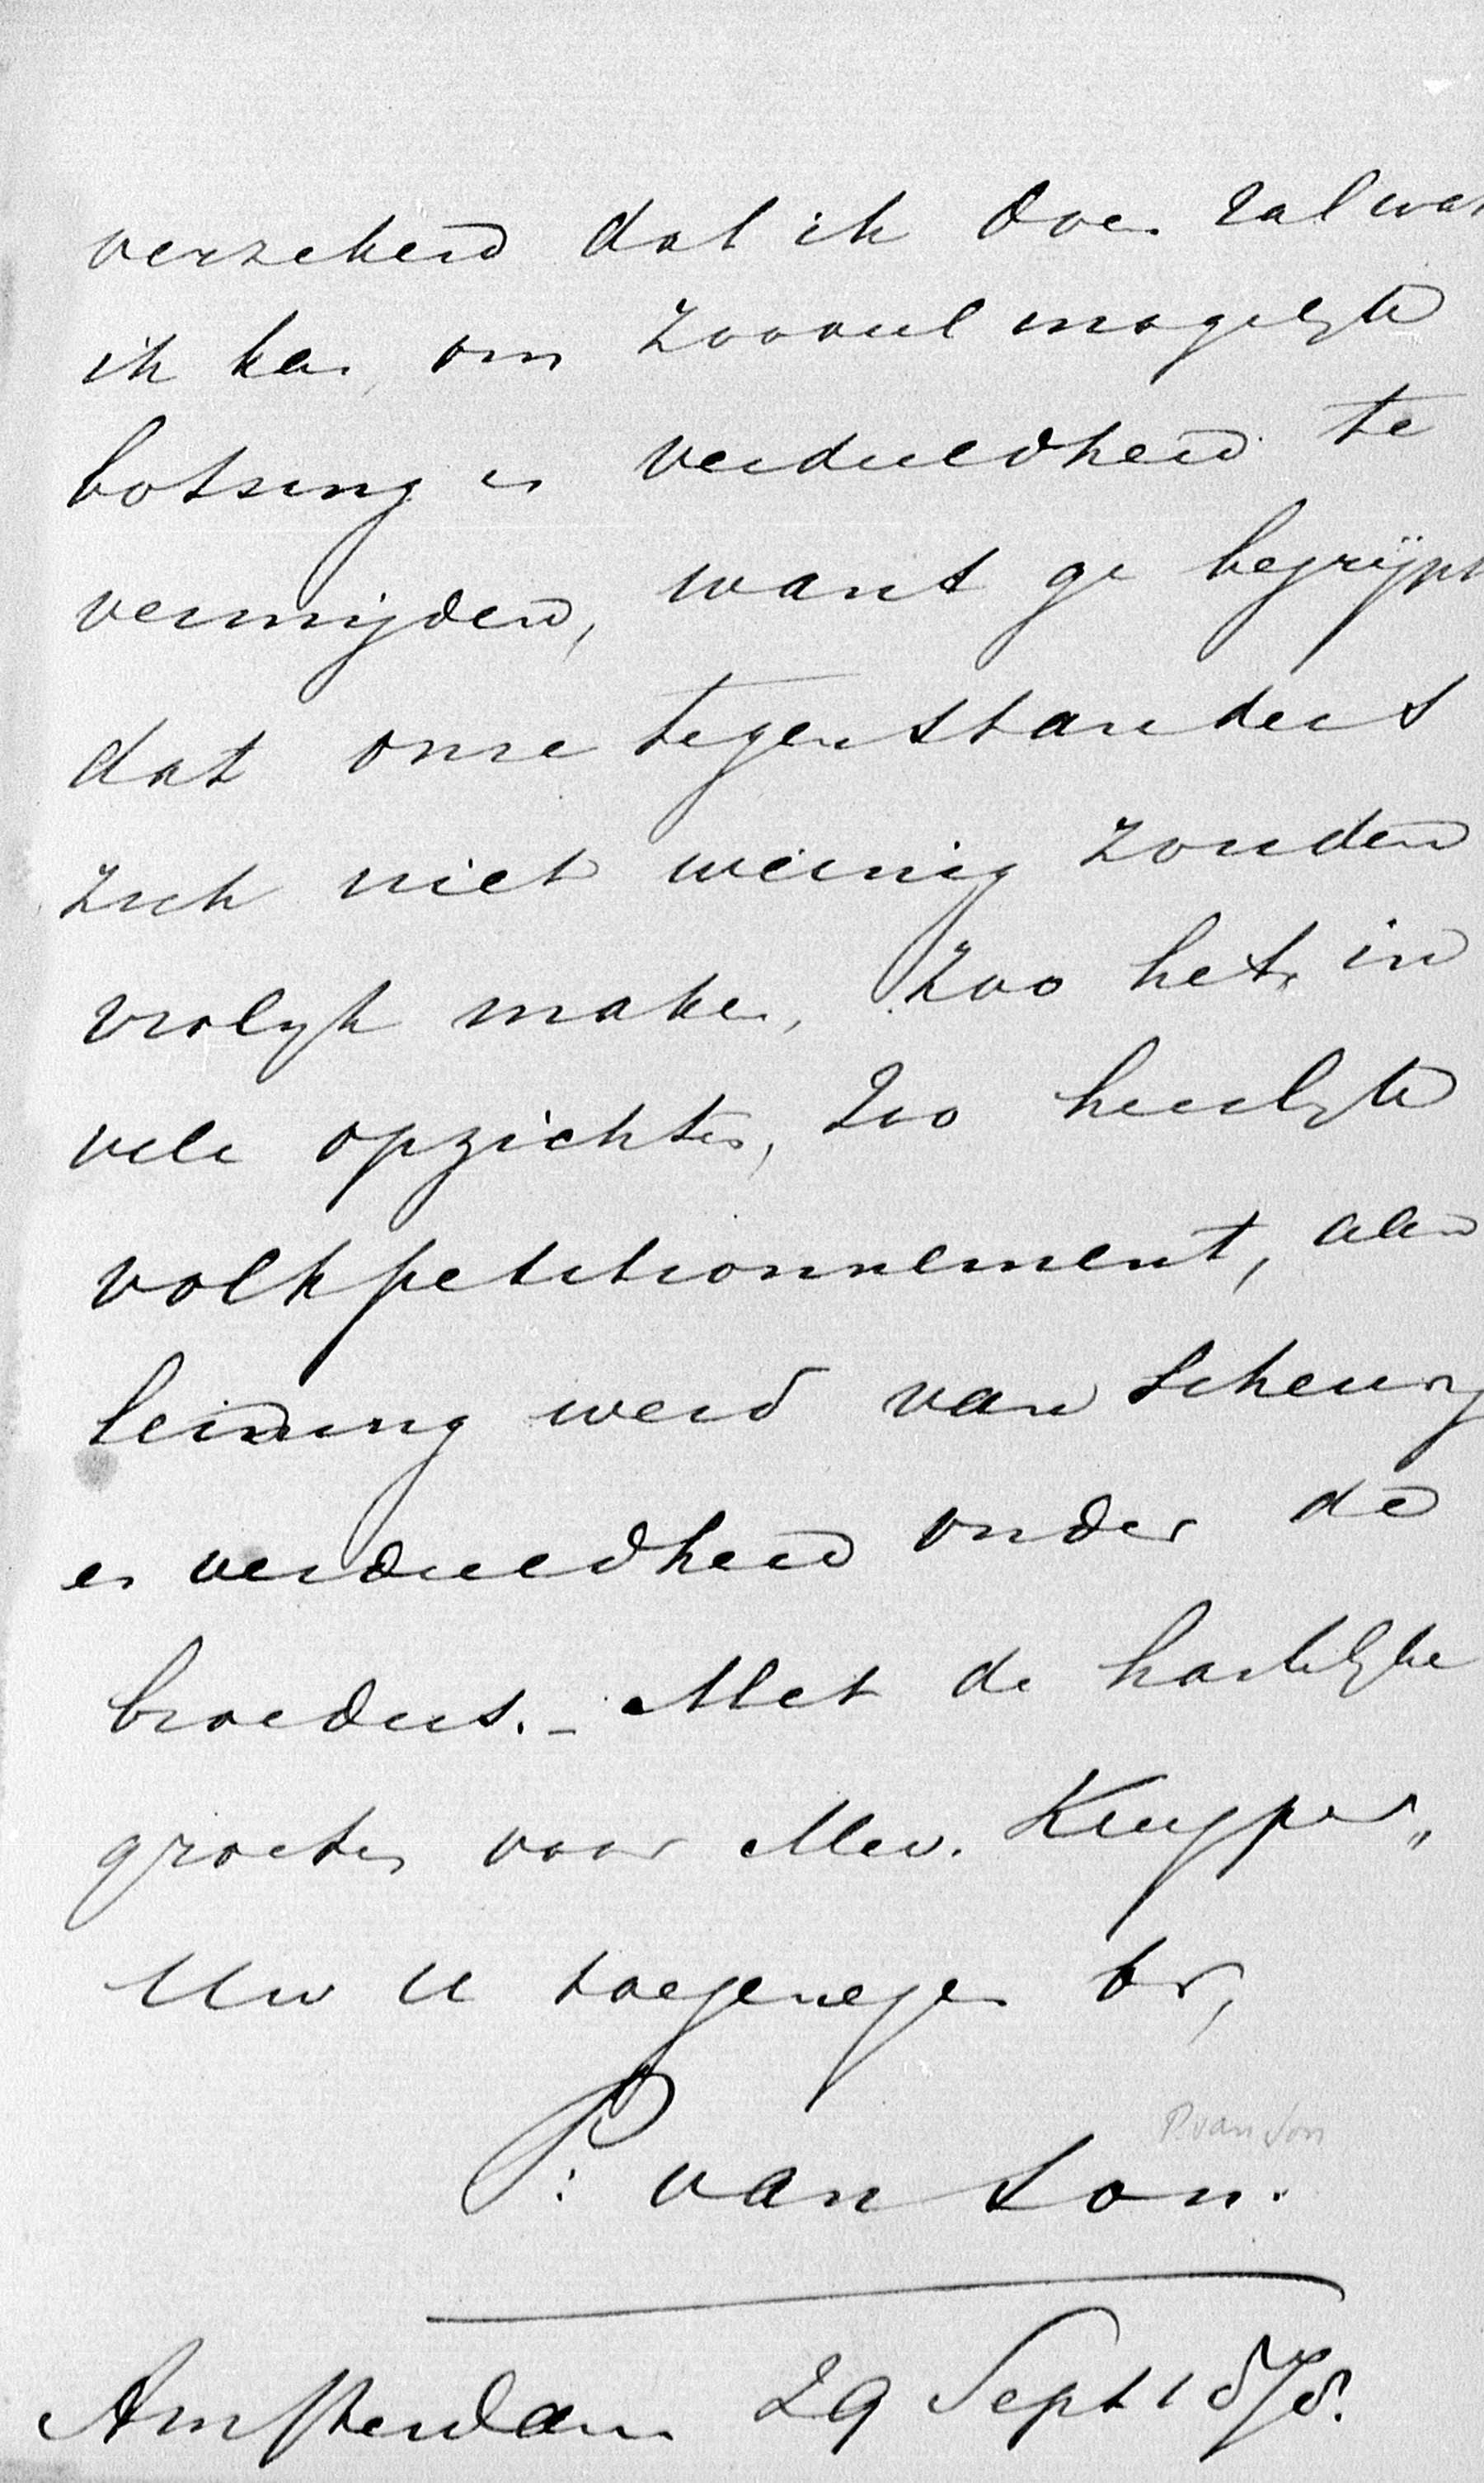 verzekerd dat ik doen zal wat
ik kan om zooveel mogelijk
botsing en verdeeldheid te
vermijden, want ge begrijpt
dat onze tegenstanders
zich niet weinig zouden
vrolijk maken, zoo het, in
vele opzichten, zoo heerlijk
volkpetitionnement, aan
leiding werd van scheuring
en verdeeldheid onder de
broeders. - Met de hartelijke
groeten voor Mev. Kuyper,,
Uw U toegenegen br,
P. van Son
P: van Son.
Amsterdam 29 Sept 1878.